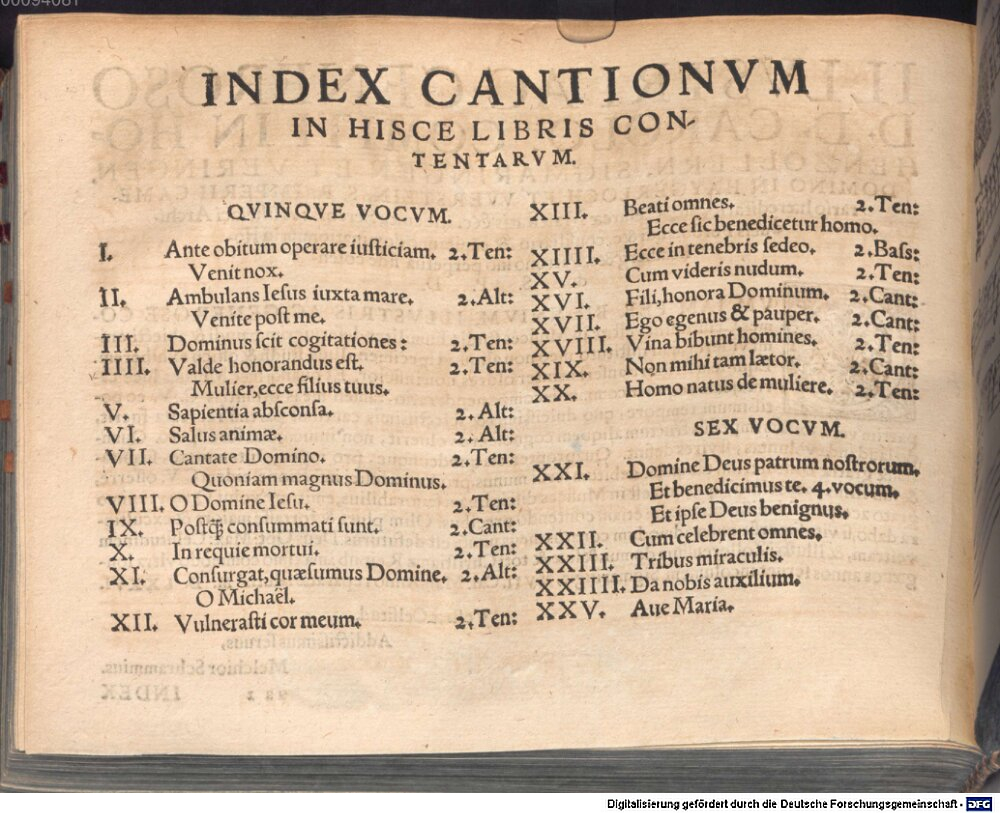 00094081
INDEX CANTIONVM
IN HISCE LIBRIS CON-
TENTARVM.
QVINQVE VOCVM.
I. Ante obitum operare iusticiam. 2. Ten:
Venit nox.
II. Ambulans Iesus iuxta mare. 2. Alt:
Venite post me.
III. Dominus scit cogitationes: 2. Ten:
IIII. Valde honorandus est. 2. Ten:
Mulier, ecce filius tuus.
V. Sapientia absconsa. 2. Alt:
VI. Salus animæ. 2. Alt:
VII. Cantate Domino. 2. Ten:
Quoniam magnus Dominus.
VIII. O Domine Iesu. 2. Ten:
IX. Postq̃ consummati sunt. 2. Cant:
X. In requie mortui. 2. Ten:
XI. Consurgat, quæsumus Domine. 2. Alt:
O Michaël.
XII. Vulnerasti cor meum. 2. Ten:
XIII. Beati omnes. 2. Ten:
Ecce sic benedicetur homo.
XIIII. Ecce in tenebris sedeo. 2. Bass:
XV. Cum videris nudum. 2. Ten:
XVI. Fili, honora Dominum. 2. Cant:
XVII. Ego egenus & pauper. 2. Cant:
XVIII. Vina bibunt homines. 2. Ten:
XIX. Non mihi tam lætor. 2. Cant:
XX. Homo natus de muliere. 2. Ten:
SEX VOCVM.
XXI. Domine Deus patrum nostrorum.
Et benedicimus te. 4. vocum.
Et ipse Deus benignus.
XXII. Cum celebrent omnes.
XXIII. Tribus miraculis.
XXIIII. Da nobis auxilium.
XXV. Aue Maria.
Digitalisierung gefördert durch die Deutsche Forschungsgemeinschaft - DFG